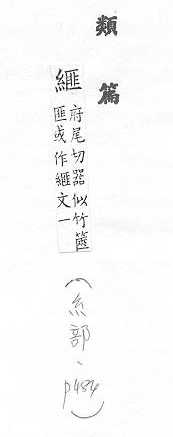 類篇
䌦 府尾切器似竹篋
匪或作䌦文一
(糸部、p484)